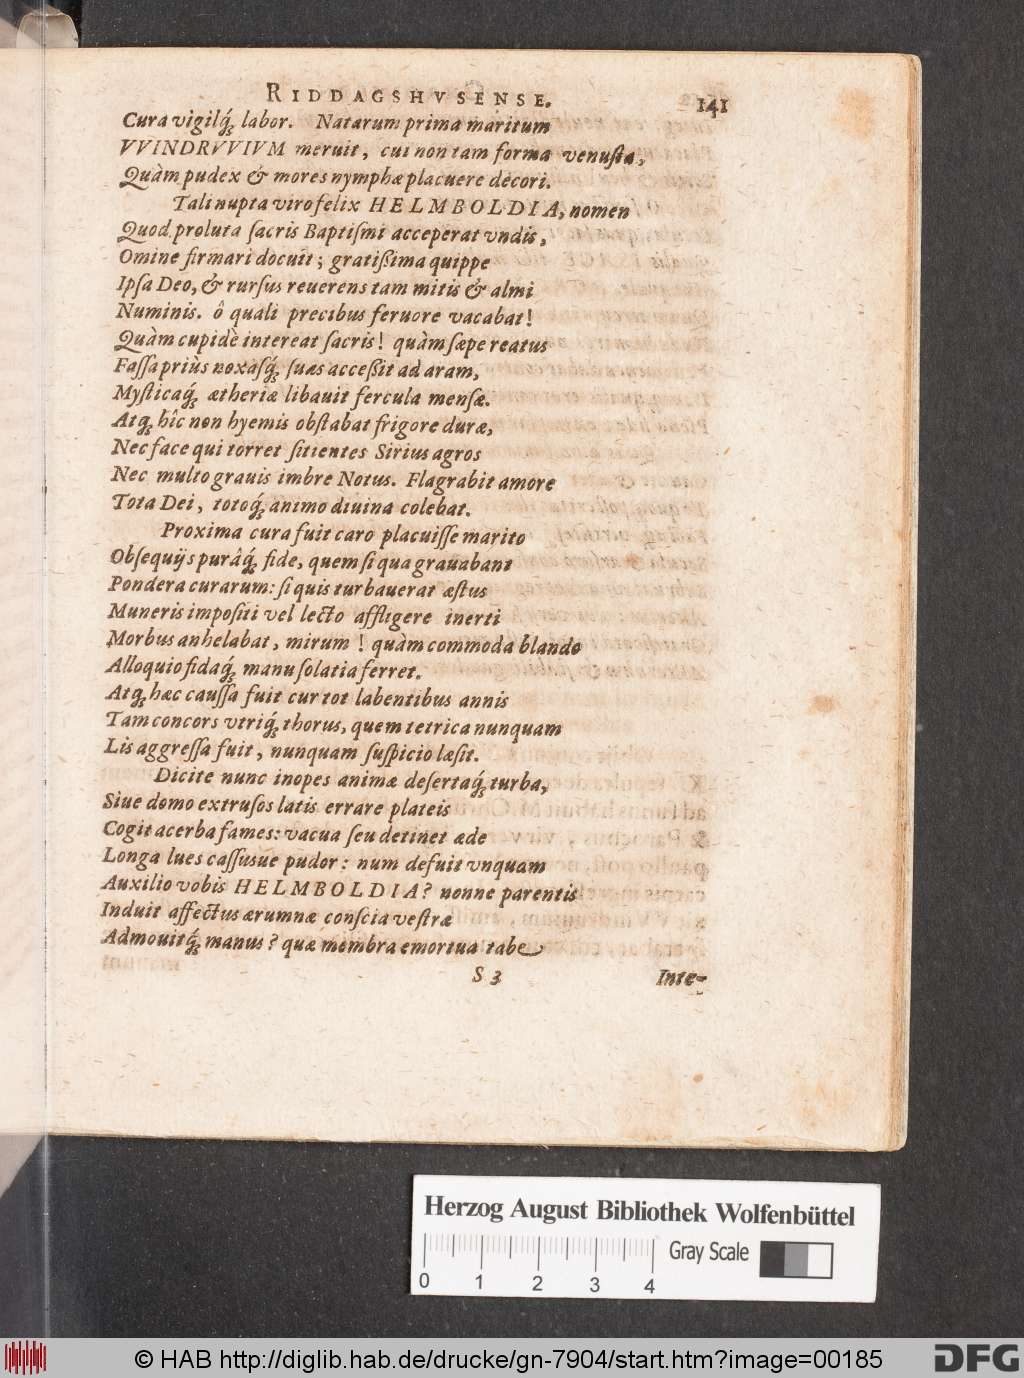 RIDDAGSHVSENSE. 141
Cura vigilq́; labor. Natarum prima maritum
VVINDRVVIVM meruit, cui non tam forma venuſta,
Quàm pudex & mores nymphæ placuere decori.
Tali nupta viro felix HELMBOLDIA, nomen
Quod proluta ſacris Baptiſmi acceperat vndis,
Omine firmari docuit; gratißima quippe
Ipſa Deo, & rurſus reuerens tam mitis & almi
Numinis. ô quali precibus feruore vacabat!
Quàm cupidè intereat ſacris! quàm ſæpe reatus
Faſſa priùs noxaſq́; ſuas acceßit ad aram,
Myſticaq́; ætheriæ libauit fercula menſæ.
Atq; hîc non hyemis obſtabat frigore duræ,
Nec face qui torret ſitientes Sirius agros
Nec multo grauis imbre Notus. Flagrabit amore
Tota Dei, totoq́; animo diuina colebat.
Proxima cura fuit caro placuiſſe marito
Obſequijs purâq́; fide, quem ſi qua grauabant
Pondera curarum: ſi quis turbauerat æſtus
Muneris impoſiti vel lecto affligere inerti
Morbus anhelabat, mirum! quàm commoda blando
Alloquio fidaq́; manu ſolatia ferret.
Atq; hæc cauſſa fuit cur tot labentibus annis
Tam concors vtriq́; thorus, quem tetrica nunquam
Lis aggreſſa fuit, nunquam ſuſpicio læſit.
Dicite nunc inopes animæ deſertaq́; turba,
Siue domo extruſos latis errare plateis
Cogit acerba fames: vacua ſeu detinet æde
Longa lues caſſusue pudor: num defuit vnquam
Auxilio vobis HELMBOLDIA? nonne parentis
Induit affectus ærumnæ conſcia veſtræ
Admouitq́; manus? quæ membra emortua tabe
S 3 Inte-
Herzog August Bibliothek Wolfenbüttel
Gray Scale
0 1 2 3 4
© HAB http://diglib.hab.de/drucke/gn-7904/start.htm?image=00185 DFG